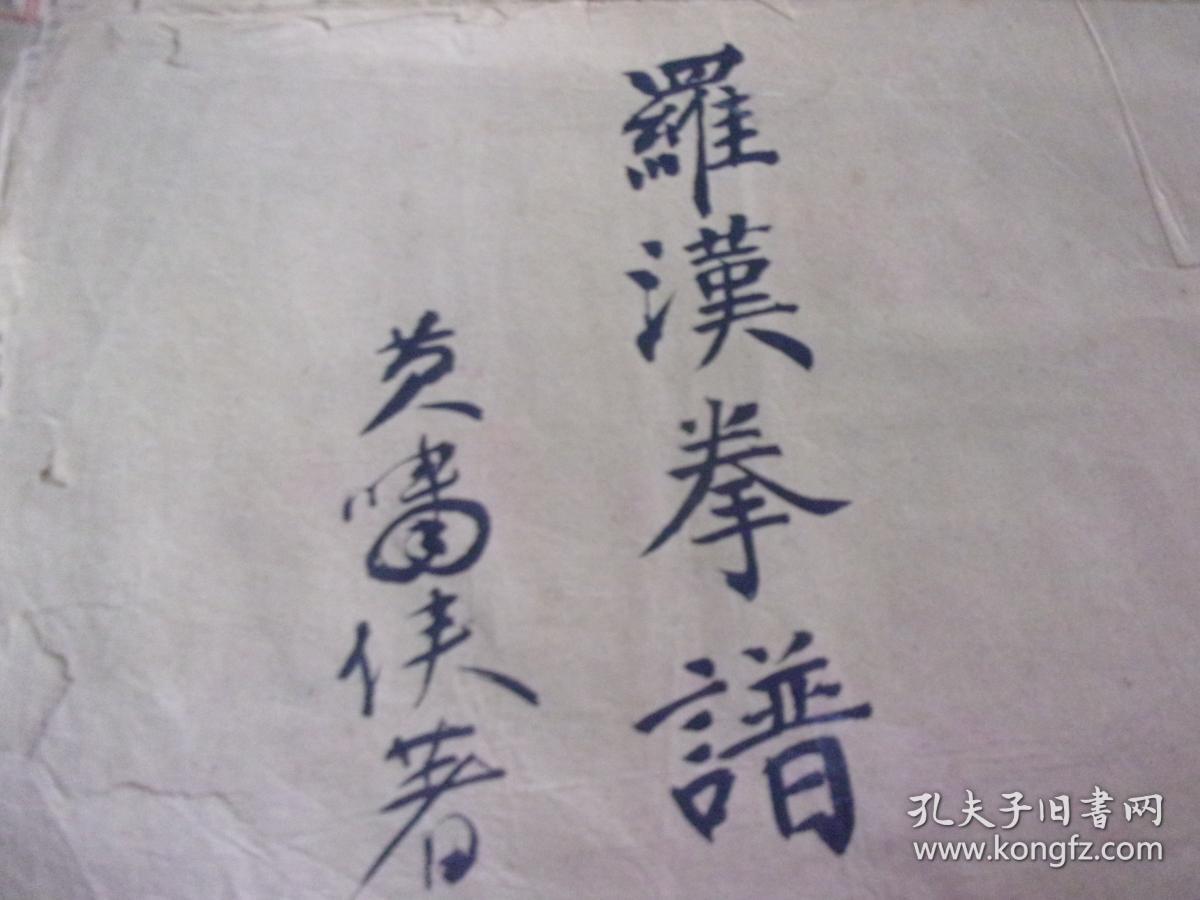 羅漢拳譜
黄嘯侠著
孔夫子旧書网
www.kongfz.com